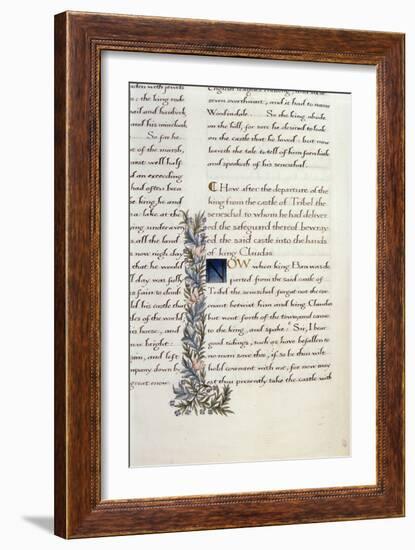 : the king rode
So far he
of the marsh,
well half
an exceeding
had often
king he and
lake at the
all the land
now nigh day
that he would
day was fully
fain to climb
his castle
of the world
his horse, and
bright:
and left
down by
great
English leagues
seven overthwart, and it had to name
So the king abode
on the hill, for sore he desired to look
on the castle that he loved: but now
leaveth the tale to tell of him forwhile
and speaketh of his seneschal.
How after the departure of the
king from the castle of Tribel the
seneschal to whom he had deliver
ed the safeguard thereof bewray
ed the said castle into the hands
of king Claudas
NOW when king Ban was de
parted from the said castle of
Tribel the seneschal forgat not the cov
enant betwixt him and king Claudas
but went forth of the town and came
to the king, and spake: Sir, I bear
good tidings, such are have befallen to
no man save thee, if so be thou wilt
hold covenant with me, for now may
est thou presently take the castle with